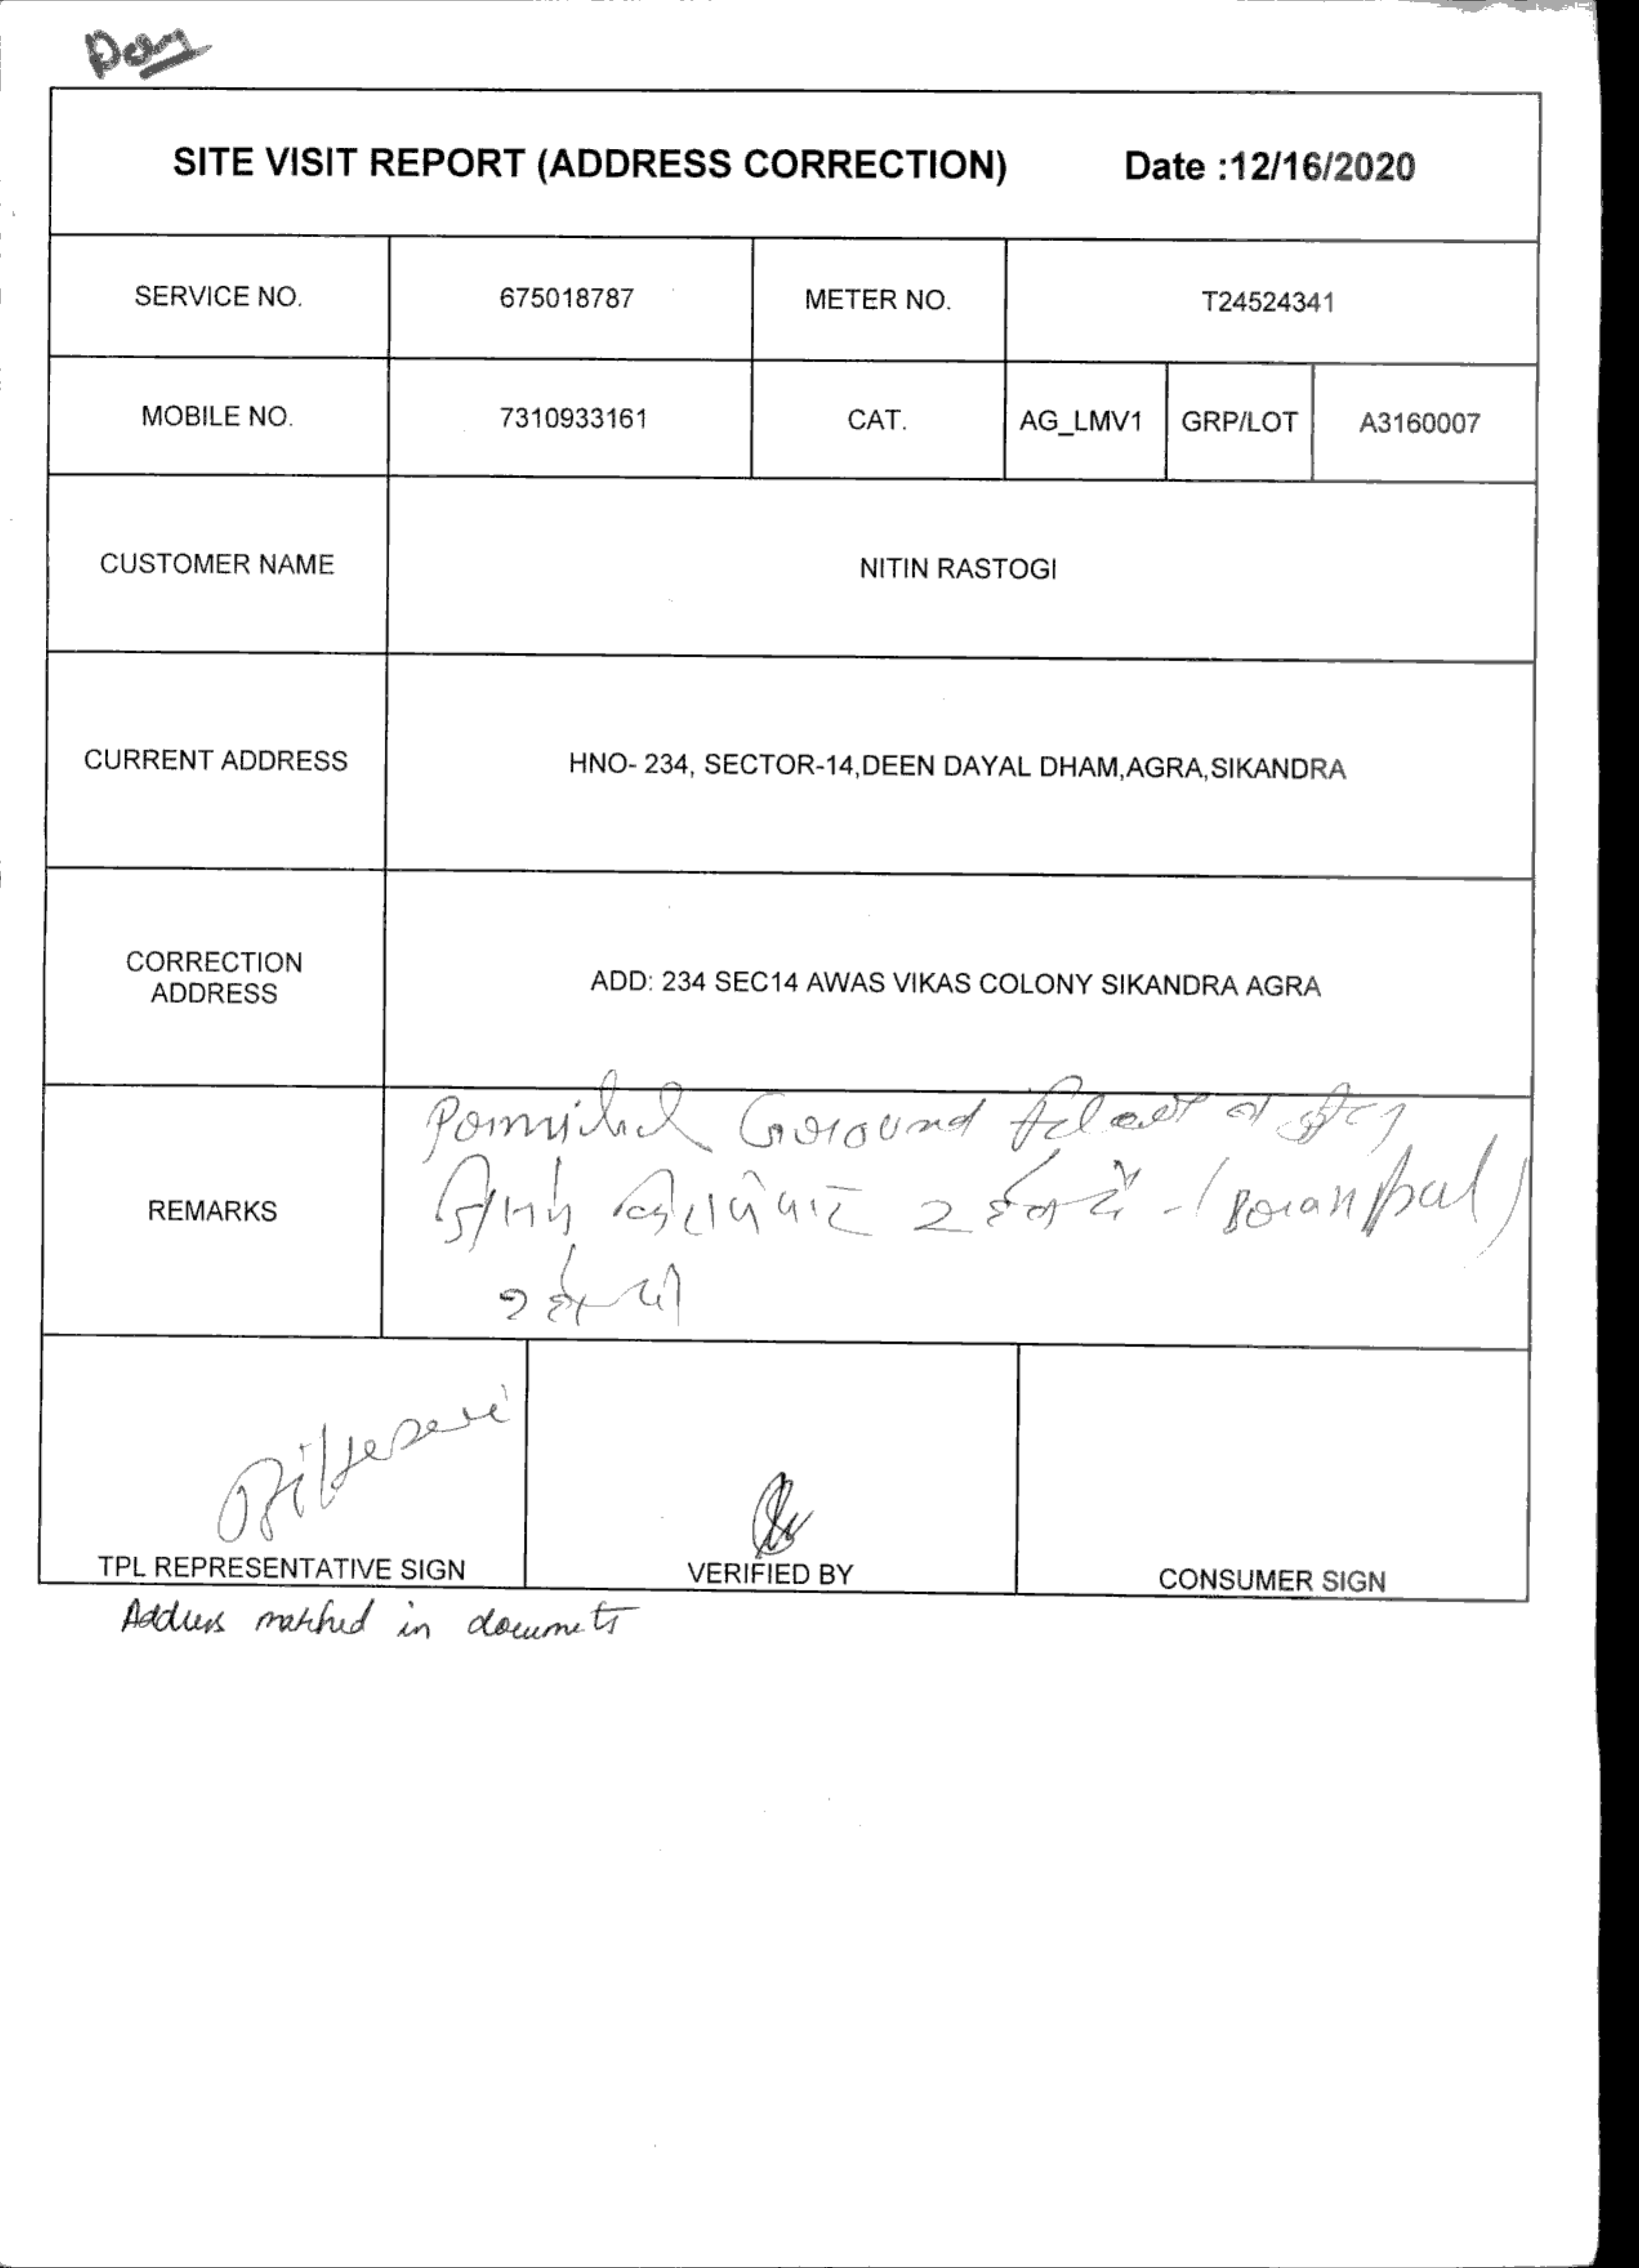 SITE VISIT REPORT (ADDRESS CORRECTION) Date :12/16/2020
SERVICE NO. 675018787 METER NO. T24524341
MOBILE NO. 7310933161 CAT. AG_LMV1 GRP/LOT A3160007
CUSTOMER NAME NITIN RASTOGI
CURRENT ADDRESS HNO- 234, SECTOR-14,DEEN DAYAL DHAM,AGRA,SIKANDRA
CORRECTION
ADDRESS
ADD: 234 SEC14 AWAS VIKAS COLONY SIKANDRA AGRA
REMARKS
TPL REPRESENTATIVE SIGN VERIFIED BY CONSUMER SIGN
Address matched in documents